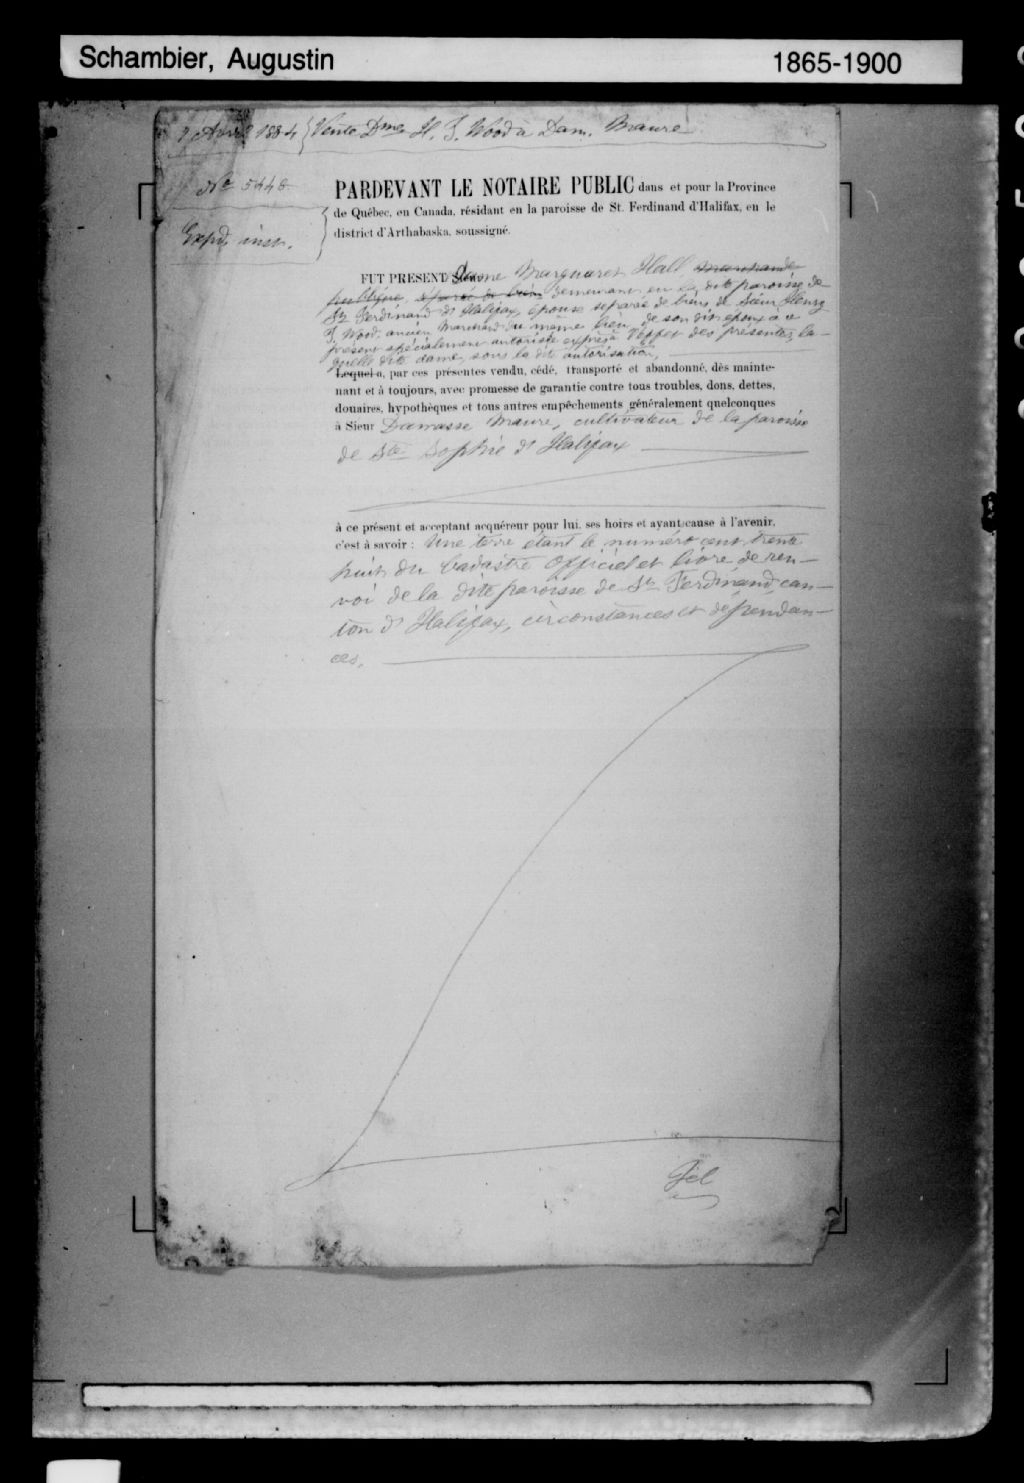 Schambier, Augustin 1865-1900
7 Avril 1884 } Vente Dme H. J. Wood à Dam. Maure
No 5448
Expd. inst.
PARDEVANT LE NOTAIRE PUBLIC dans et pour la Province
de Québec, en Canada, résidant en la paroisse de St. Ferdinand d'Halifax, en le
district d'Arthabaska, soussigné.
FUT PRESENT Dame Marguaret Hall, marchande
publique, séparée de biens demeurant en la dite paroisse de
St Ferdinand d'Halifax, épouse séparée de biens de Sieur Henry
J. Wood, ancien Marchand du même lieu, de son dit époux à ce
présent spécialement autorisée exprès à l'effet des présentes, la-
quelle dite dame, sous la dite autorisation,
Lequel a, par ces présentes vendu, cédé, transporté et abandonné, dès mainte-
nant et à toujours, avec promesse de garantie contre tous troubles, dons, dettes,
douaires, hypothèques et tous autres empêchements généralement quelconques
à Sieur Damasse Maure, cultivateur de la paroisse
de Ste Sophie d'Halifax
à ce présent et acceptant acquéreur pour lui, ses hoirs et ayant cause à l'avenir,
c'est à savoir : Une terre étant le numéro cent trente
huit du Cadastre Officiel et livre de ren-
voi de la dite paroisse de St Ferdinand, can-
ton d'Halifax, circonstances et dépendan-
ces.